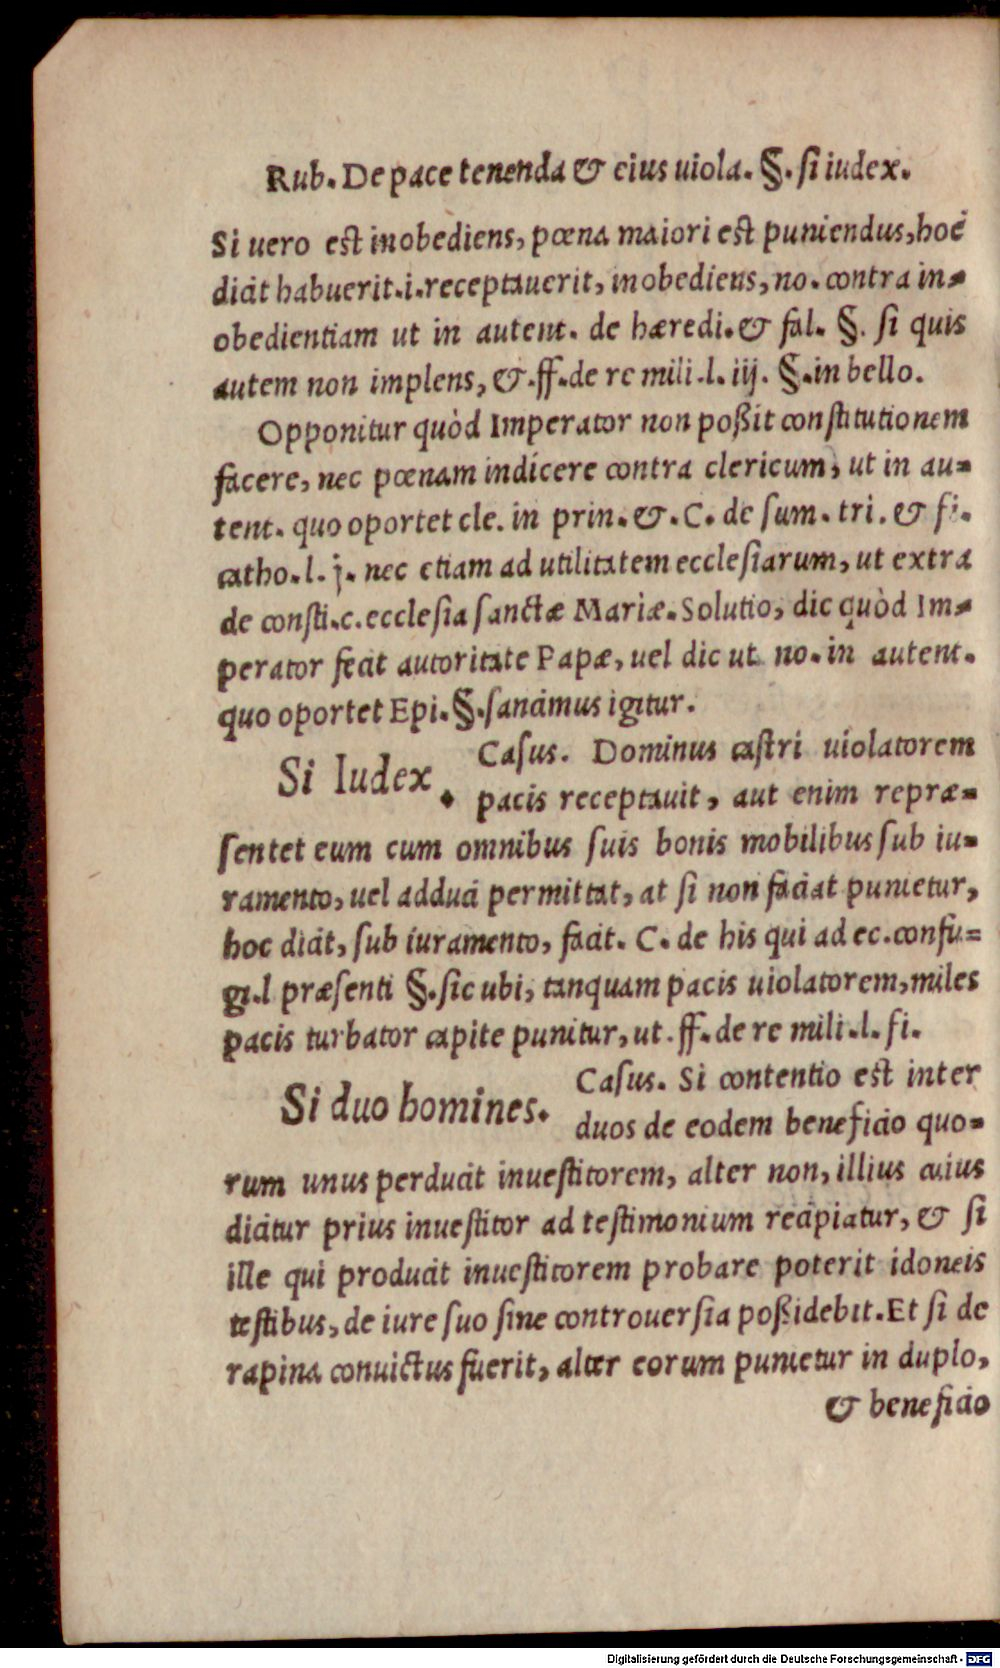 Rub. De pace tenenda & eius uiola. §. si iudex.
Si uero est inobediens, pœna maiori est puniendus, hoc
dicit habuerit.i.receptauerit, inobediens, no. contra in-
obedientiam ut in autent. de hæredi. & fal. §. si quis
autem non implens, &.ff.de re mili.l. iij. §.in bello.
Opponitur quòd Imperator non poßit constitutionem
facere, nec pœnam indicere contra clericum, ut in au-
tent. quo oportet cle. in prin. &. C. de sum. tri. & fi.
catho.l. j. nec etiam ad utilitatem ecclesiarum, ut extra
de consti.c.ecclesia sanctæ Mariæ. Solutio, dic quòd Im-
perator fecit autoritate Papæ, uel dic ut no. in autent.
quo oportet Epi. §.sancimus igitur.
Si Iudex. Casus. Dominus castri uiolatorem
pacis receptauit, aut enim repræ-
sentet eum cum omnibus suis bonis mobilibus sub iu-
ramento, uel adduci permittat, at si non faciat punietur,
hoc dicit, sub iuramento, facit. C. de his qui ad ec.confu-
gi.l præsenti §.sic ubi, tanquam pacis uiolatorem, miles
pacis turbator capite punitur, ut. ff. de re mili.l. fi.
Si duo homines. Casus. Si contentio est inter
duos de eodem beneficio quo-
rum unus perducit inuestitorem, alter non, illius cuius
dicitur prius inuestitor ad testimonium recipiatur, & si
ille qui producit inuestitorem probare poterit idoneis
testibus, de iure suo sine controuersia poßidebit. Et si de
rapina conuictus fuerit, alter eorum punietur in duplo,
& beneficio
Digitalisierung gefördert durch die Deutsche Forschungsgemeinschaft - DFG